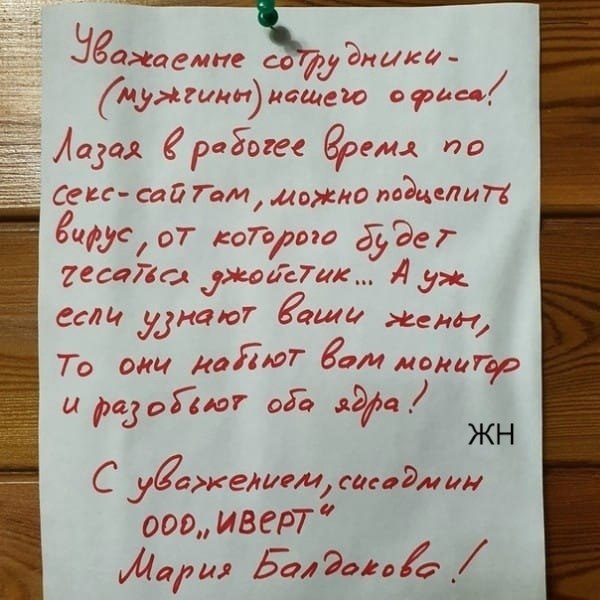 Уважаемые сотрудники-
(мужчины) нашего офиса!
Лазая в рабочее время по
секс-сайтам, можно подцепить
вирус, от которого будет
чесаться джойстик... А уж
если узнают ваши жены,
то они набьют вам монитор
и разобьют оба ядра!
ЖН
С уважением, сисадмин
ООО „ИВЕРТ"
Мария Балдакова!